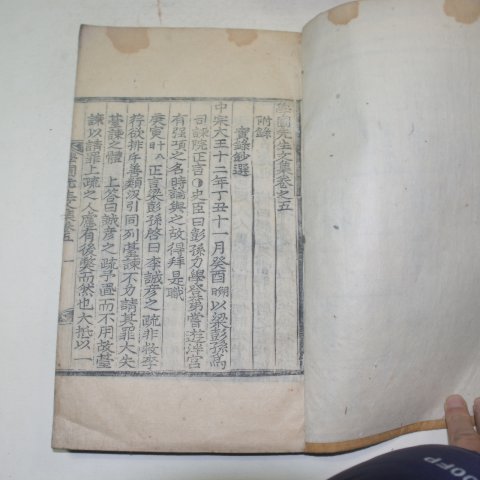 學圃先生文集卷之五
附錄
實錄鈔選
中宗大王十二年丁丑十一月癸酉朔以梁彭孫爲
司諫院正言○史臣曰彭孫力學登第嘗遊泮宮
有强項之名時論與之故得拜是職
庚寅十八正言梁彭孫啓曰李誠彦之疏非救李
荇欲排斥善類汲引同列臺諫不力請其罪大失
臺諫之體 上答曰誠彦之疏予置而不用故臺
諫以請罪上疏之人慮有後弊而然也大抵以一
學圃先生文集卷五 一